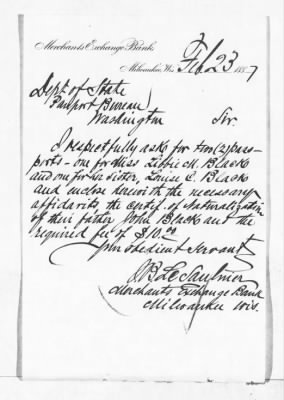 Merchants Exchange Bank,
Milwaukee, Wis. Feb 23 1887
Dept of State
Passport Bureau
Washington Sir
I respectfully ask for two (2) pass-
ports - one for Miss Libbie M. Black
and one for her sister, Louise C. Black
and enclose herewith the necessary
affidavits the certif. of Naturalization
of their father John Black and the
required fee of $10.00
Your obedient Servant
Merchants Exchange Bank
Milwaukee Wis.